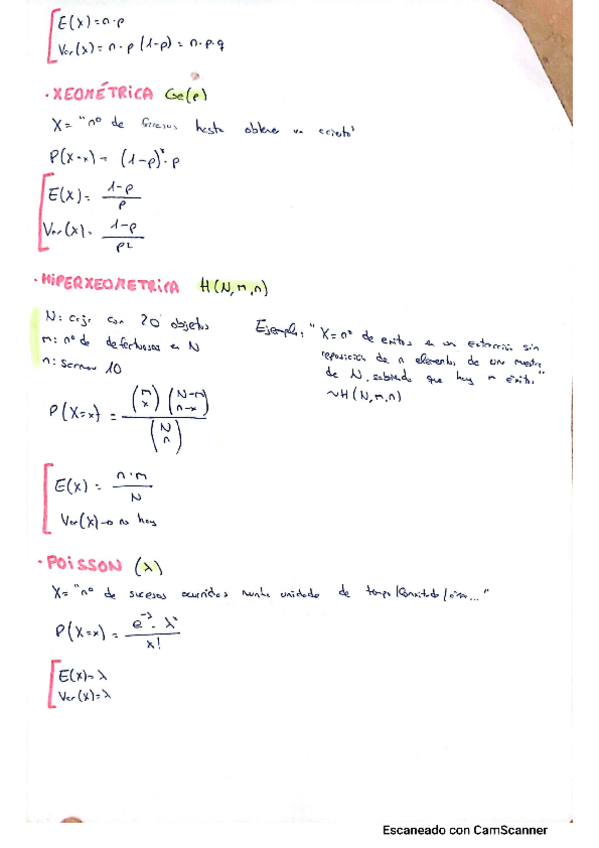 E(x) = n·p
Var(x) = n·p (1-p) = n·p·q
· XEOMÉTRICA Ge(p)
X = "nº de fracasos hasta obtener un éxito"
P(X=x) = (1-p)ˣ · p
E(x) = 1-p / p
Var(x) = 1-p / p²
· HIPERXEOMETRICA H(N,m,n)
N: caja con 20 objetos
m: nº de defectuosos en N
n: 10
P(X=x) = (m x) (N-m n-x) / (N n)
E(x) = n·m / N
Var(x) → no hay
Ejemplo: "X = nº de exitos en un extracción sin
reposición de n elementos de una muestra
de N, sabiendo que hay m éxitos"
~ H(N,m,n)
· POISSON (λ)
X = "nº de sucesos ocurridos nunha unidade de tempo / / ..."
P(X=x) = e^-λ · λˣ / x!
E(x) = λ
Var(x) = λ
Escaneado con CamScanner